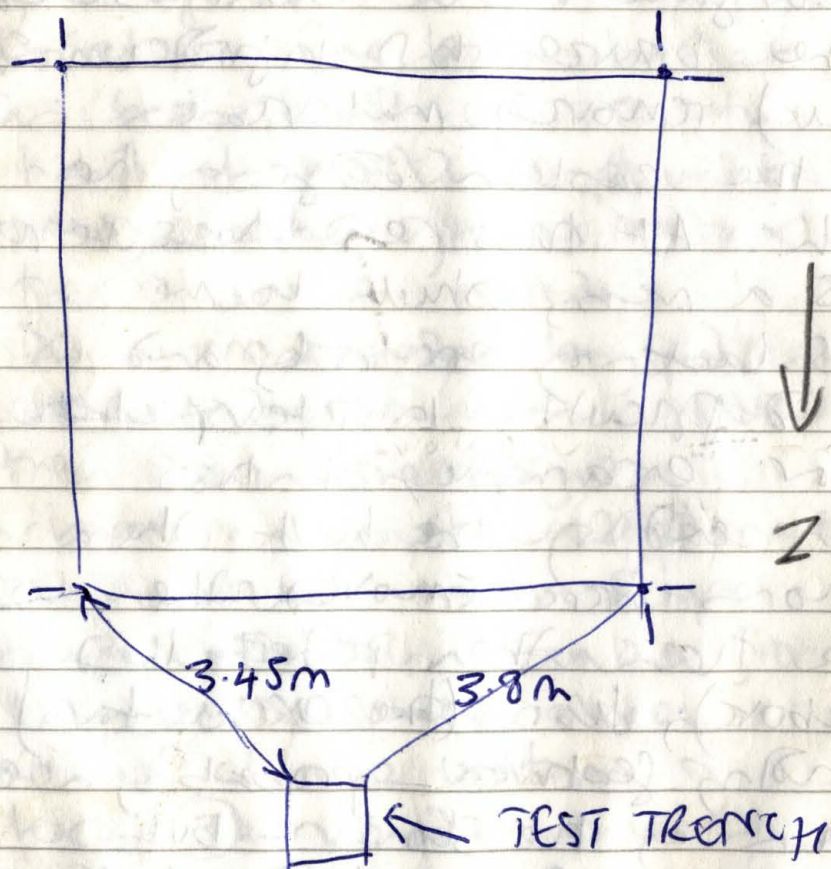 N
3.45m
3.8m
TEST TRENCH